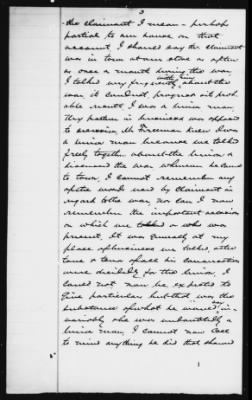 3
the claimant I mean - perhaps
partial to our house on that
account. I should say the claimant
was in town at our store as often
as once a month during the war.
I talked very frequently with him about the
war, its conduct, progress and prob-
able result. I was a Union man.
My partner in business was opposed
to secession. Mr Freeman knew I was
a Union man because we talked
freely together about the Union &
discussed the war whenever he came
to town. I cannot remember any
specific words used by claimant in
regard to the war, nor can I now
remember the important occasion
on which we talked or who was
present. It was generally at my
place of business we talked, after
tone & tenor of all his conversation
were decidedly for the Union. I
could not now be expected to
give particulars but that was the
substance of what he would say in-
variably. He was undoubtedly a
Union man. I cannot now call
to mind anything he did that showed
1